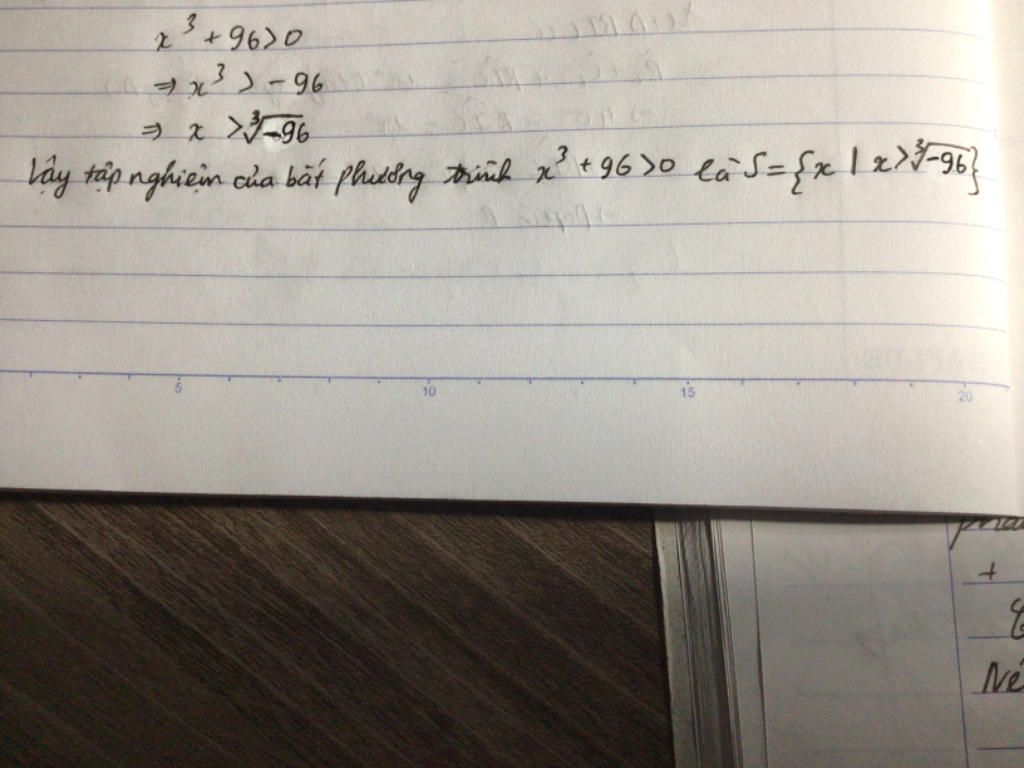 x³ + 96 > 0
⇒ x³ > -96
⇒ x > ∛-96
Vậy tập nghiệm của bất phương trình x³ + 96 > 0 là S = {x | x > ∛-96}
5 10 15 20
+
Nế